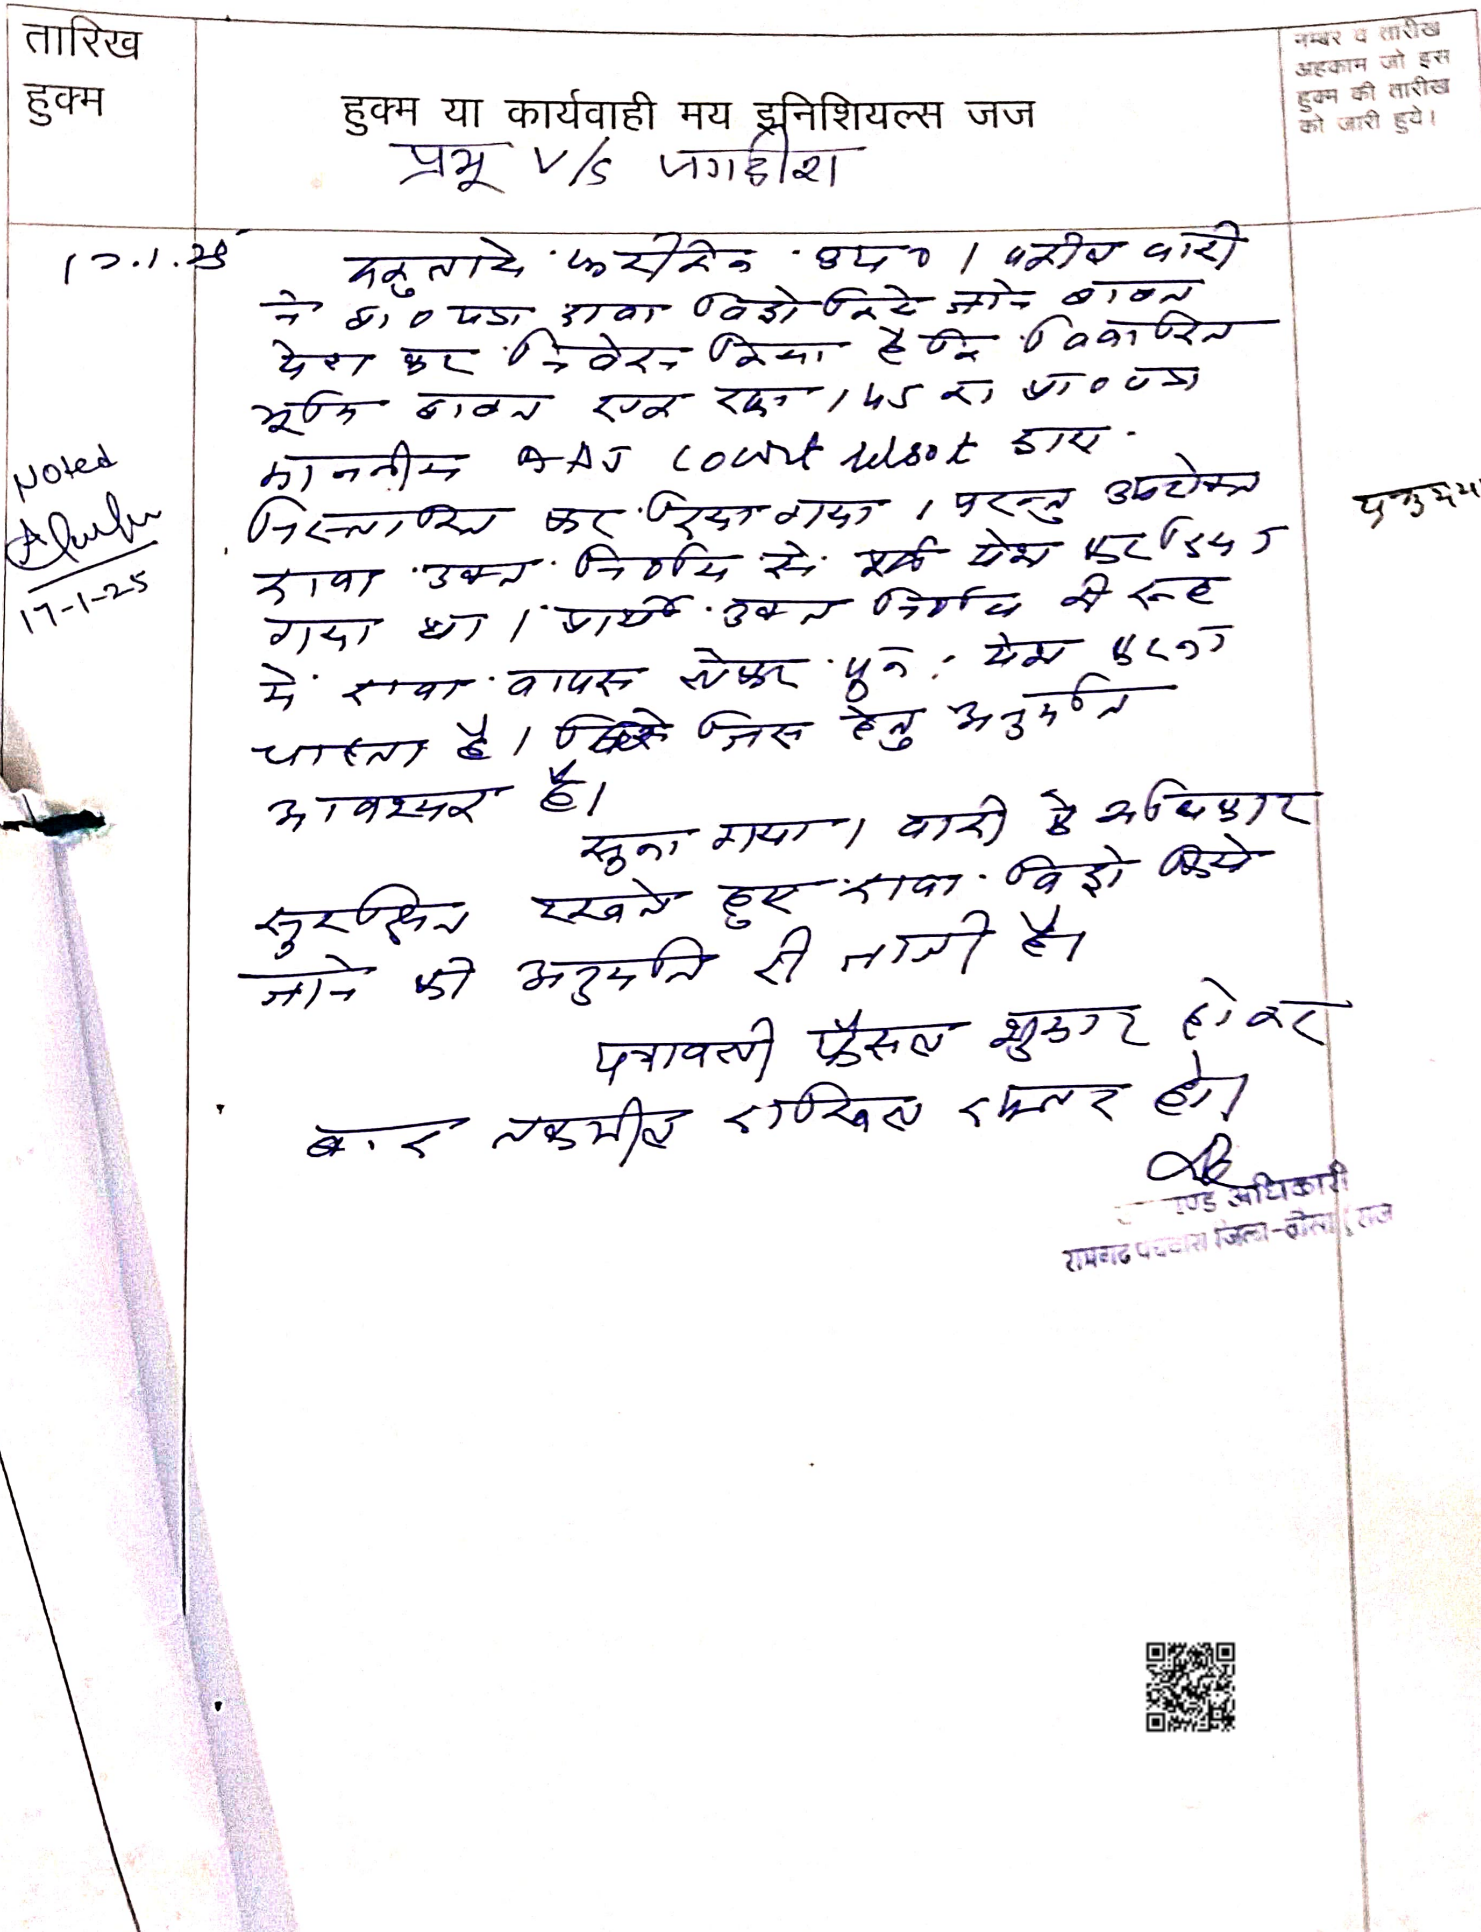 तारिख
हुक्म
हुक्म या कार्यवाही मय इनिशियल्स जज
प्रभू V/s जगदीश
नम्बर व तारीख
अहकाम जो इस
हुक्म की तारीख
को जारी हुये।
17.1.25
वकुलाये फरीकेन उप0। वकील वादी
ने प्रा0 पत्र दावा विड्रो किये जाने बाबत
पेश कर निवेदन किया है कि विवादित
भूमि बाबत एक रफा 145 का प्रा0 पत्र
माननीय court द्वारा
निस्तारित कर दिया गया। परन्तु उपरोक्त
दावा उक्त निर्णय से पूर्व पेश कर दिया
गया था। प्रार्थी उक्त निर्णय की रूह
में दावा वापस लेकर पुन: पेश करना
चाहता है। जिस हेतु अनुमति
आवश्यक है।
सुना गया। वादी के अधिकार
सुरक्षित रखते हुए दावा विड्रो किये
जाने की अनुमति दी जाती है।
पत्रावली फैसल शुमार होकर
बाद तकमील दाखिल दफ्तर हो।
Noted
17-1-25
ण्ड अधिकारी
रामगढ पचवारा जिला-दौसा राज